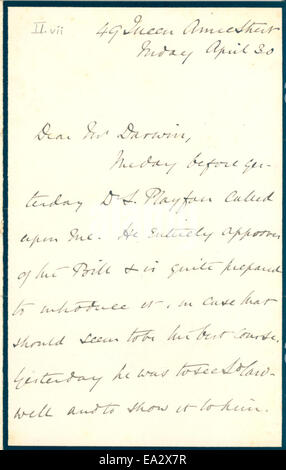 II.vii
49 Queen Anne Street
Friday April 30
Dear Mr Darwin,
The day before yes-
terday Dr L. Playfair called
upon me. He entirely approves
of the Bill & is quite prepared
to introduce it, in case that
should seem to be the best course.
Yesterday he was to see Ld Card-
well and to show it to him.
alamy
alamy stock photo
EA2X7R
www.alamy.com